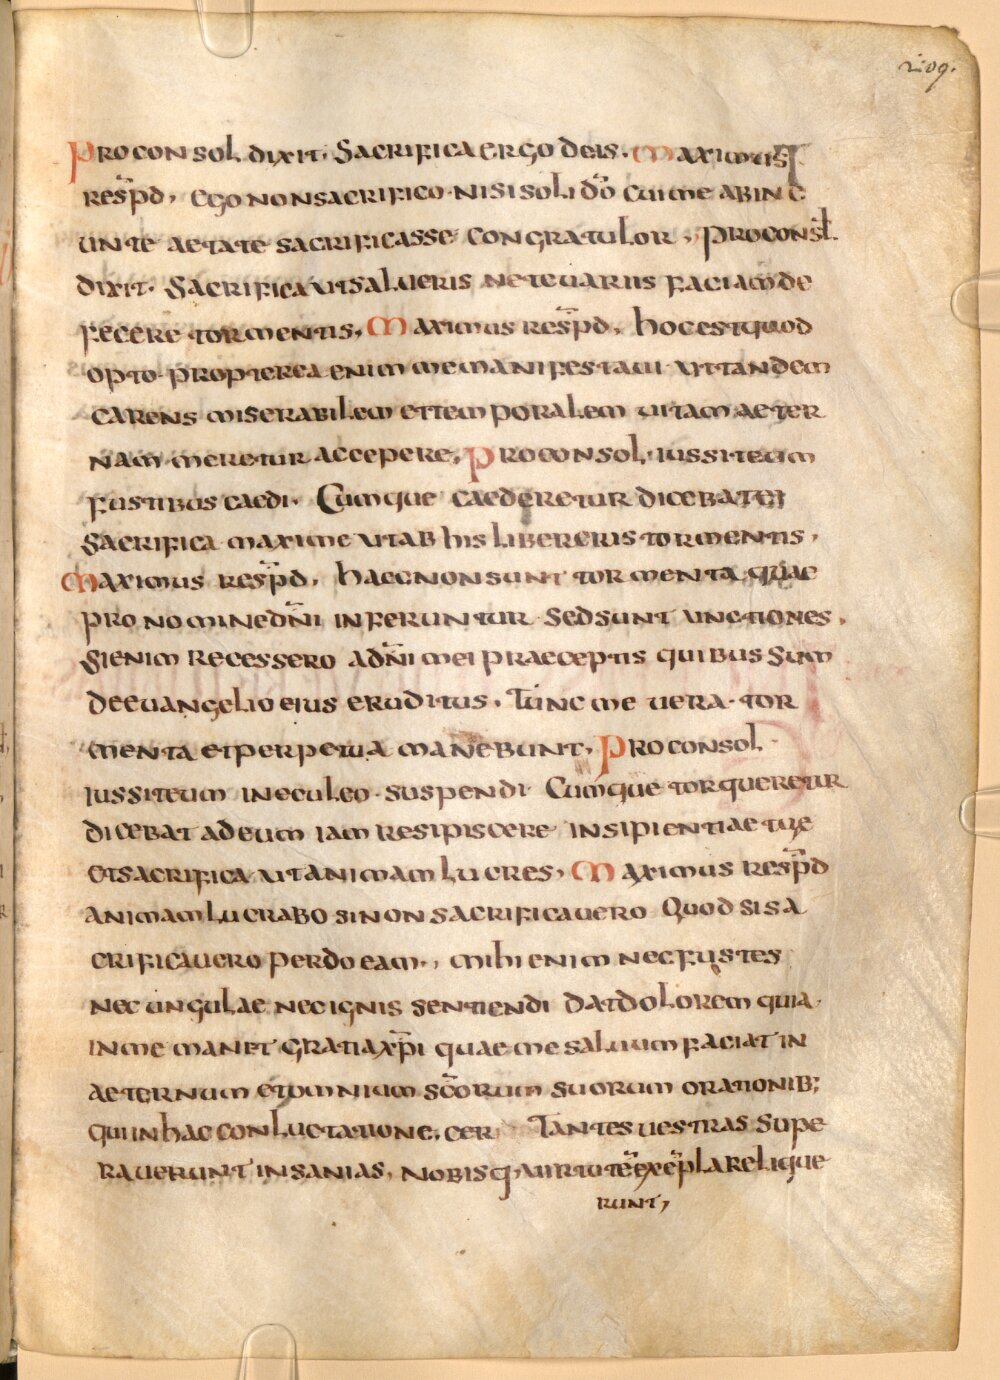 209.
Proconsol dixit. Sacrifica ergo deis. Maximus
resp̄d, ego non sacrifico nisi soli dō cui me ab inc
unte aetate sacrificasse congratulor, proconsl̄
dixit. Sacrifica ut salueris ne te uariis faciam de
fecere tormentis, Maximus resp̄d, hoc est quod
opto propterea enim me manifestaui ut tandem
carens miserabilem et temporalem uitam aeter
nam meretur accepere, Proconsol iussit eum
fustibus caedi. Cumque caederetur dicebat ei
sacrifica maxime ut ab his libereris tormentis,
Maximus resp̄d, haec non sunt tormenta quae
pro nomine dn̄i inferuntur sed sunt unctiones,
Si enim recessero a dn̄i mei praeceptis quibus sum
de euangelio eius eruditus, Tunc me uera tor
menta et perpetua manebunt, Proconsol
iussit eum in eculeo suspendi Cumque torqueretur
dicebat ad eum iam resipiscere insipientiae tue
et sacrifica ut animam lucres, Maximus resp̄d
animam lucrabo si non sacrificauero Quod si sa
crificauero perdo eam., mihi enim nec fustes
nec ungulae nec ignis sentiendi dat dolorem quia
in me manet gratia xp̄i quae me saluum faciat in
aeternum et omnium sc̄orum suorum orationib;
qui in hac conluctatione, cer Tantes uestras supe
rauerunt insanias, nobisq, uirtutē exēpla relique
runt,